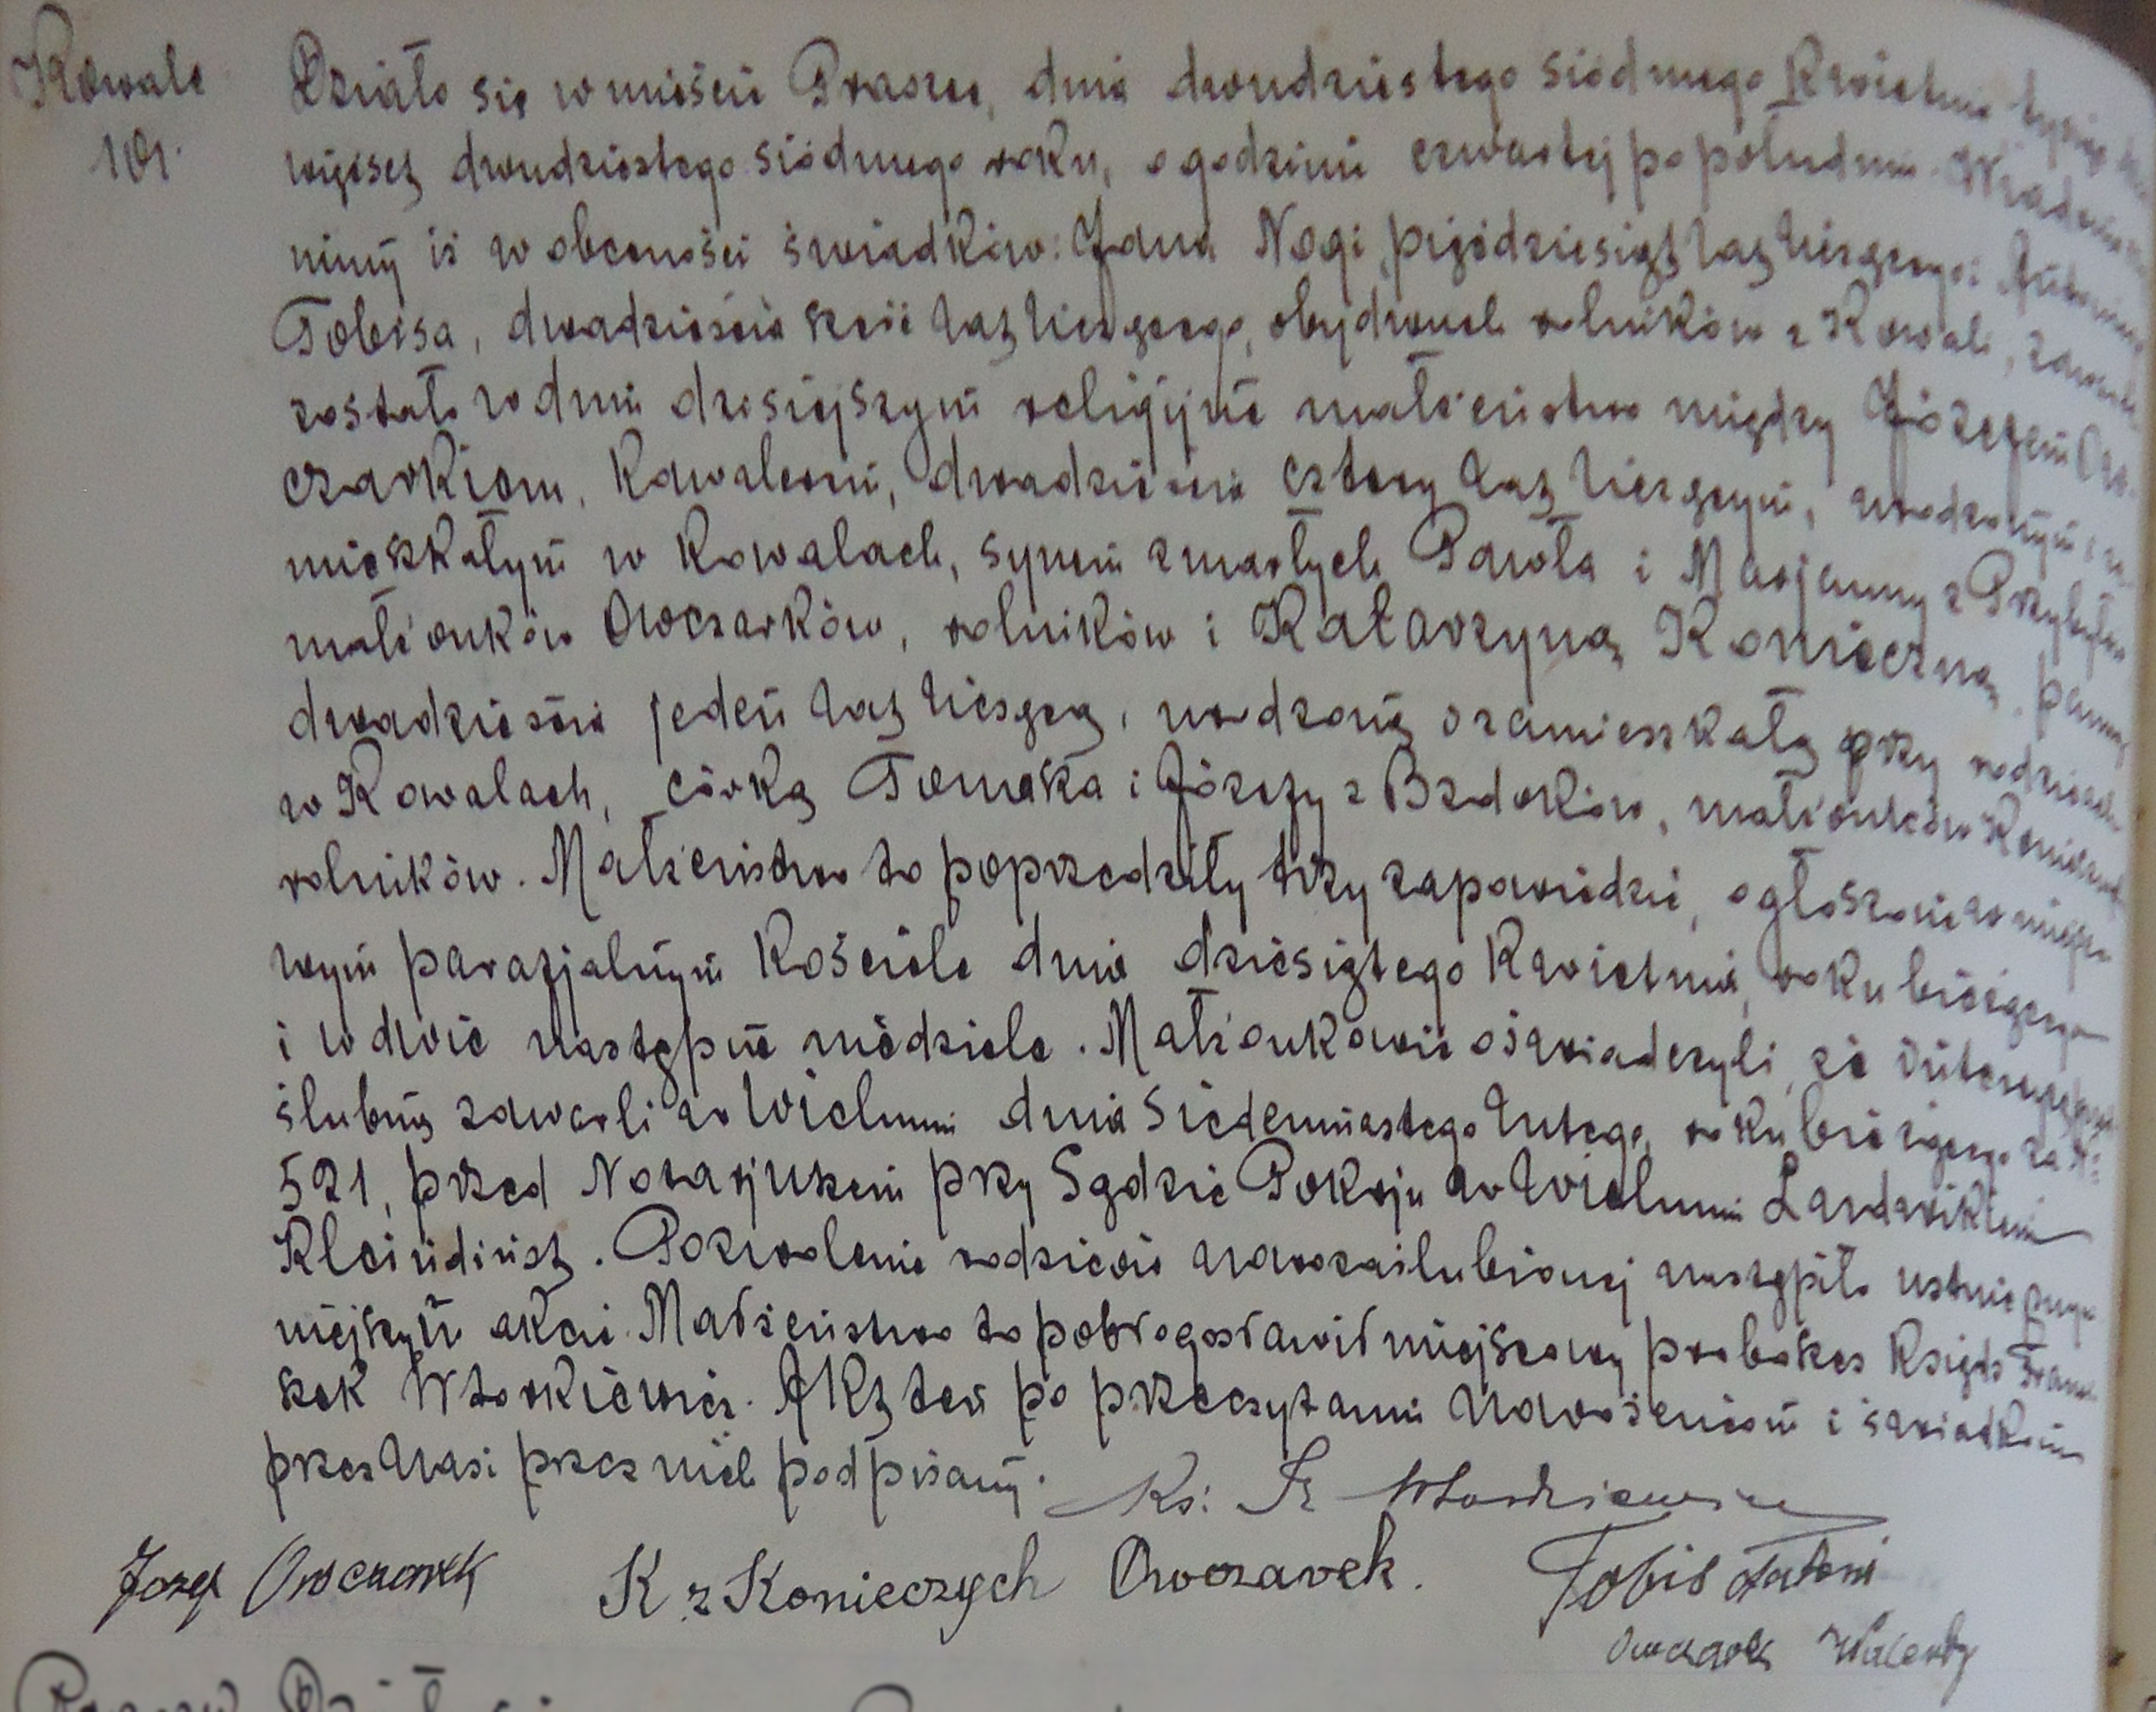 Kowale
101.
Działo się w mieście Praszce, dnia dwudziestego siódmego Kwietnia tysiąc
więset dwudziestego siódmego roku, o godzinie czwartej po południu. Wiadomo
nimy iż w obecności świadków: Jana Nogi, pięćdziesiąt lat liczącego i Antoniego
Tobisa, dwadzieścia sześć lat liczącego, obydwuch rolników z Kowali, zawarte
zostało w dniu dzisiejszym religijne małżeństwo między Józefem Ow-
czarkiem, kawalerem, dwadzieścia cztery lat liczącym, urodzonym i za
mieszkałym w Kowalach, synem zmarłych Pawła i Marjanny z Przybyłów
małżonków Owczarków, rolników i Katarzyną Konieczną, panną
dwadzieścia jeden lat liczącą, urodzoną i zamieszkałą przy rodzicach
w Kowalach, córką Tomasza i Józefy z Bzdorków, małżonków Koniecznych
rolników. Małżeństwo to poprzedziły trzy zapowiedzie, ogłoszone w miejsco
wym parafjalnym Kościele dnia dziesiątego Kwietnia, roku bieżącego
i w dwie następne niedziele. Małżonkowie oświadczyli, że intercyzę
ślubną zawarli w Wieluniu dnia siedemnastego Lutego, roku bieżącego za N:
521, przed Notarjuszem przy Sądzie Pokoju w Wieluniu Ludwikiem
Kleindinst. Pozwolenie rodziców nowozaślubionej nastąpiło ustnie przy
niejszym akcie. Małżeństwo to pobłogosławił miejscowy proboszcz Ksiądz Franci
szek Wtorkiewicz. Akt ten po przeczytaniu Nowożeńcom i świadkom
przez Nas i przez nich podpisany. Ks: Fr Wtorkiewicz
Jozef Owczarek K z Koniecznych Owczarek. Tobis Antoni
Owczarek Walenty